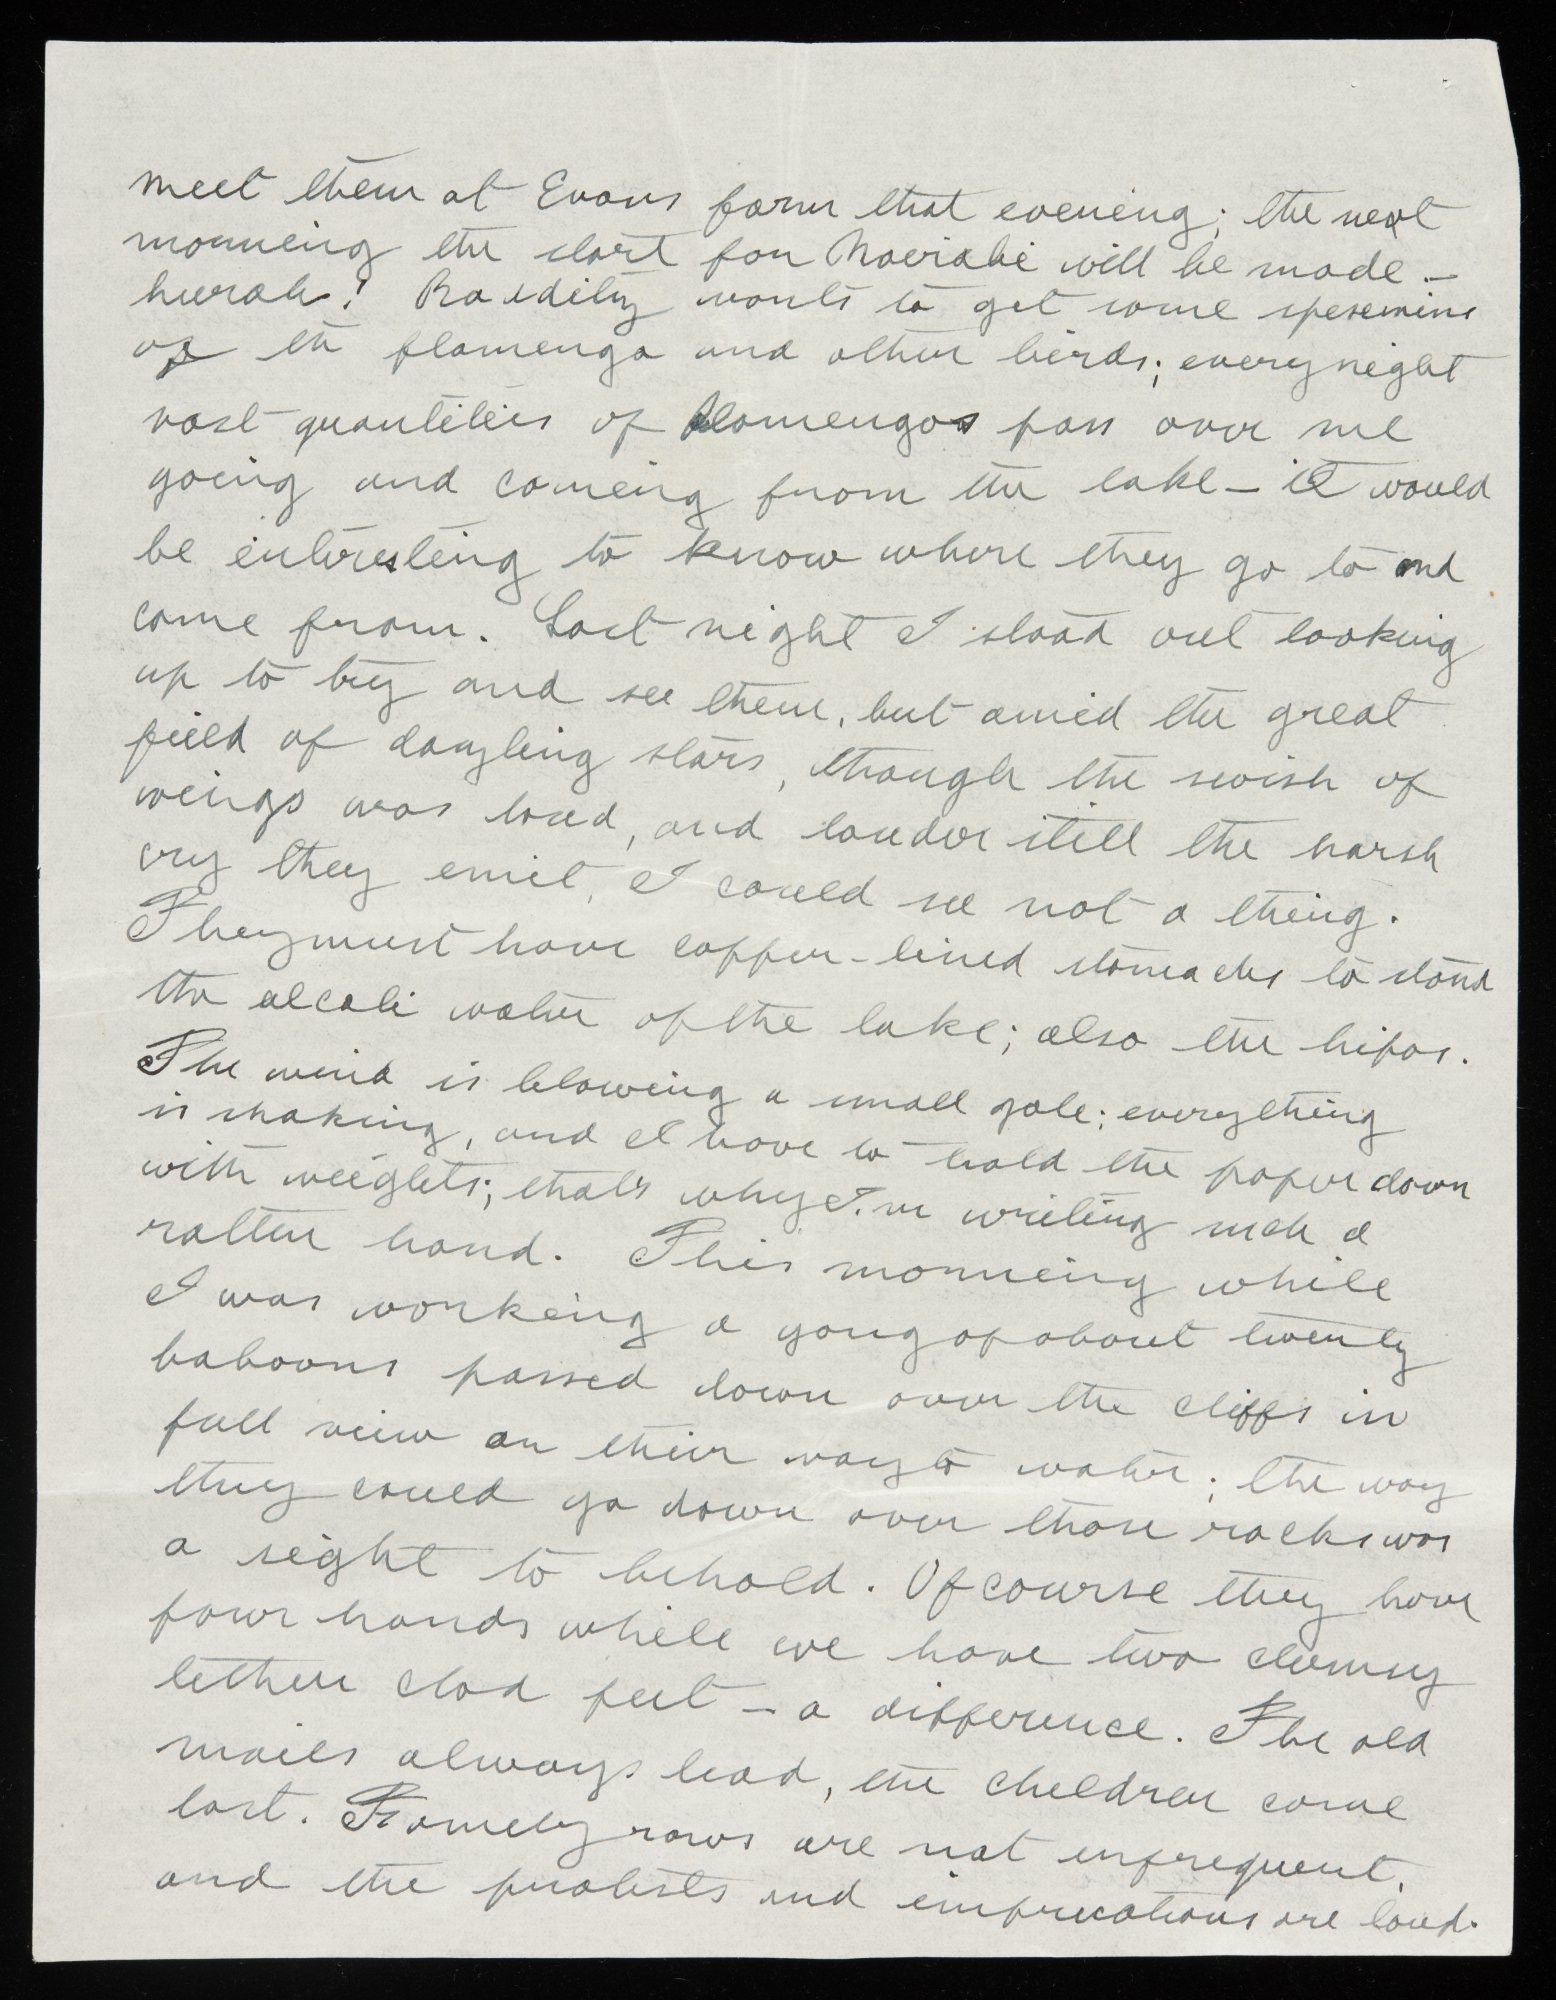 meet them at Evans farm that evening; the next
morneing the start for Naeirabi will be made –
hurah! Raddity wants to get some spesemins
of the flamengo and other birds; every night
vast quantities of flamengos pass over me
going and comeing from the lake – it would
be interesting to know where they go to and
come from. Last night I stood out looking
up to try and see them, but amid the great
field of dazzling stars, though the swish of
wings was loud, and louder still the harsh
cry they emit, I could see not a thing.
They must have copper-lined stomachs to stand
the alcali water of the lake; also the hipos.
The wind is blowing a small gale; everything
is shaking, and I have to hold the paper down
with weights; that's why I'm writing such a
rotten hand. This morneing while
I was working a gang of about twenty
baboons passed down over the cliffs in
full view on their way to water; the way
they could go down over those rocks was
a sight to behold. Of course they have
four hands while we have two clumsy
lether clad feet – a difference. The old
mails always lead, the children come
last. Family rows are not unfrequent,
and the protests and imprecations are loud.